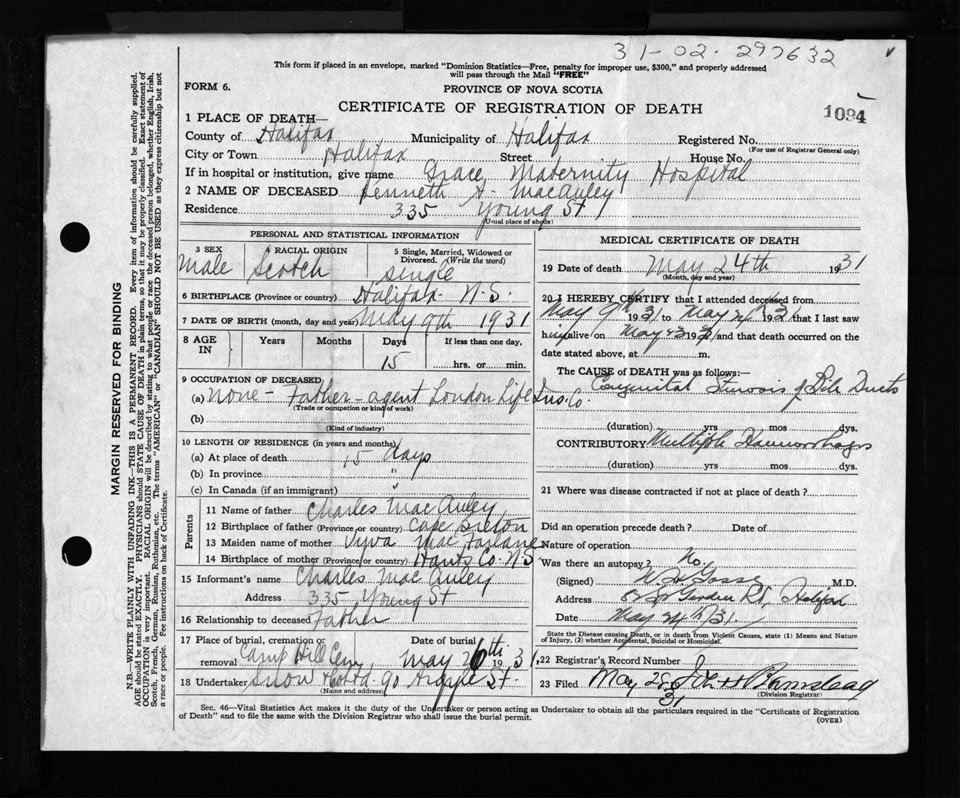 31-02-297632
This form if placed in an envelope, marked "Dominion Statistics—Free, penalty for improper use, $300," and properly addressed
will pass through the Mail "FREE"
FORM 6.
PROVINCE OF NOVA SCOTIA
CERTIFICATE OF REGISTRATION OF DEATH
1094
1 PLACE OF DEATH—
County of Halifax Municipality of Halifax Registered No.
(For use of Registrar General only)
City or Town Halifax Street House No.
If in hospital or institution, give name Grace Maternity Hospital
2 NAME OF DECEASED Kenneth A- MacAuley
Residence 335 Young St
(Usual place of above)
PERSONAL AND STATISTICAL INFORMATION
3 SEX 4 RACIAL ORIGIN 5 Single, Married, Widowed or
Divorced. (Write the word)
Male Scotch Single
6 BIRTHPLACE (Province or country) Halifax N.S.
7 DATE OF BIRTH (month, day and year) May 9th 1931
8 AGE IN Years Months Days If less than one day,
15 hrs. or min.
9 OCCUPATION OF DECEASED
(a) None - Father - agent London Life Ins. Co.
(Trade or occupation or kind of work)
(b)
(Kind of industry)
10 LENGTH OF RESIDENCE (in years and months)
(a) At place of death 15 days
(b) In province "
(c) In Canada (if an immigrant) "
Parents
11 Name of father Charles MacAuley
12 Birthplace of father (Province or country) Cape Breton
13 Maiden name of mother Vyva MacFarlane
14 Birthplace of mother (Province or country) Hants Co. N.S
15 Informant's name Charles MacAuley
Address 335 Young St
16 Relationship to deceased Father
17 Place of burial, cremation or Date of burial
removal Camp Hill Cem May 26th 1931
18 Undertaker Snow & Co Ltd 90 Argyle St.
(Name and address)
MEDICAL CERTIFICATE OF DEATH
19 Date of death May 24th 1931
(Month, day and year)
20 I HEREBY CERTIFY that I attended deceased from
May 9th 1931 to May 24th 1931 that I last saw
him alive on May 23 1931 and that death occurred on the
date stated above, at m.
The CAUSE of DEATH was as follows:—
Congenital Stenosis of Bile Ducts
(duration) yrs mos dys.
CONTRIBUTORY Multiple Haemorrhages
(duration) yrs mos dys.
21 Where was disease contracted if not at place of death?
Did an operation precede death? Date of
Nature of operation
Was there an autopsy? No.
(Signed) M.D.
Address Rd, Halifax
Date May 24th/31.
State the Disease causing Death, or in death from Violent Causes, state (1) Means and
Nature of Injury, (2) whether Accidental, Suicidal or Homicidal.
22 Registrar's Record Number
23 Filed May 28 31
(Division Registrar)
Sec. 46—Vital Statistics Act makes it the duty of the Undertaker or person acting as Undertaker to obtain all the particulars required in the "Certificate of Registration
of Death" and to file the same with the Division Registrar who shall issue the burial permit.
(OVER)
MARGIN RESERVED FOR BINDING
N.B.—WRITE PLAINLY WITH UNFADING INK—THIS IS A PERMANENT RECORD. Every item of information should be carefully supplied.
AGE should be stated EXACTLY. PHYSICIANS should STATE CAUSE OF DEATH in plain terms, so that it may be properly classified. Exact statement of
OCCUPATION is very important. RACIAL ORIGIN will be described by stating to what people or race the deceased person belonged, whether English, Irish,
Scotch, French, German, Russian, Ruthenian, etc. The terms "AMERICAN" or "CANADIAN" SHOULD NOT BE USED as they express citizenship but not
a race or people. See instructions on back of Certificate.